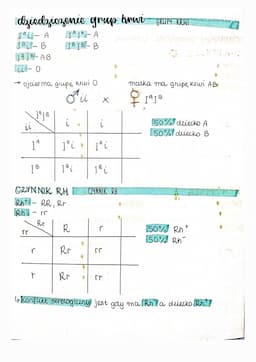 dziedziczenie grup krwi GRUPY KRWI
I^A i - A I^A I^A - A
I^B i - B I^B I^B - B
I^A I^B - AB
ii - O
→ ojciec ma grupę krwi O matka ma grupę krwi AB
♂ ii x ♀ I^A I^B
I^A I^B
ii i i
I^A I^A i I^A i
I^B I^B i I^B i
50% dziecko A
50% dziecko B
CZYNNIK RH CZYNNIK RH
Rh+ - RR, Rr
Rh- - rr
Rr
rr R r
r Rr rr
r Rr rr
50% Rh+
50% Rh-
↳ konflikt serologiczny jest gdy ma Rh- a dziecko Rh+